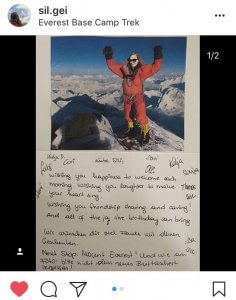 sil.gei
Everest Base Camp Trek
1/2
Wishing you happiness to welcome each
morning Wishing you laughter to make
your heart sing
Wishing you friendship sharing and caring!
And all of the joy the birthday can bring
Wir wünschen dir viel Freude mit deinen
Geschenken
Next Stop Mount Everest! Und wie am
Foto bitte nicht dein neues
vergessen!